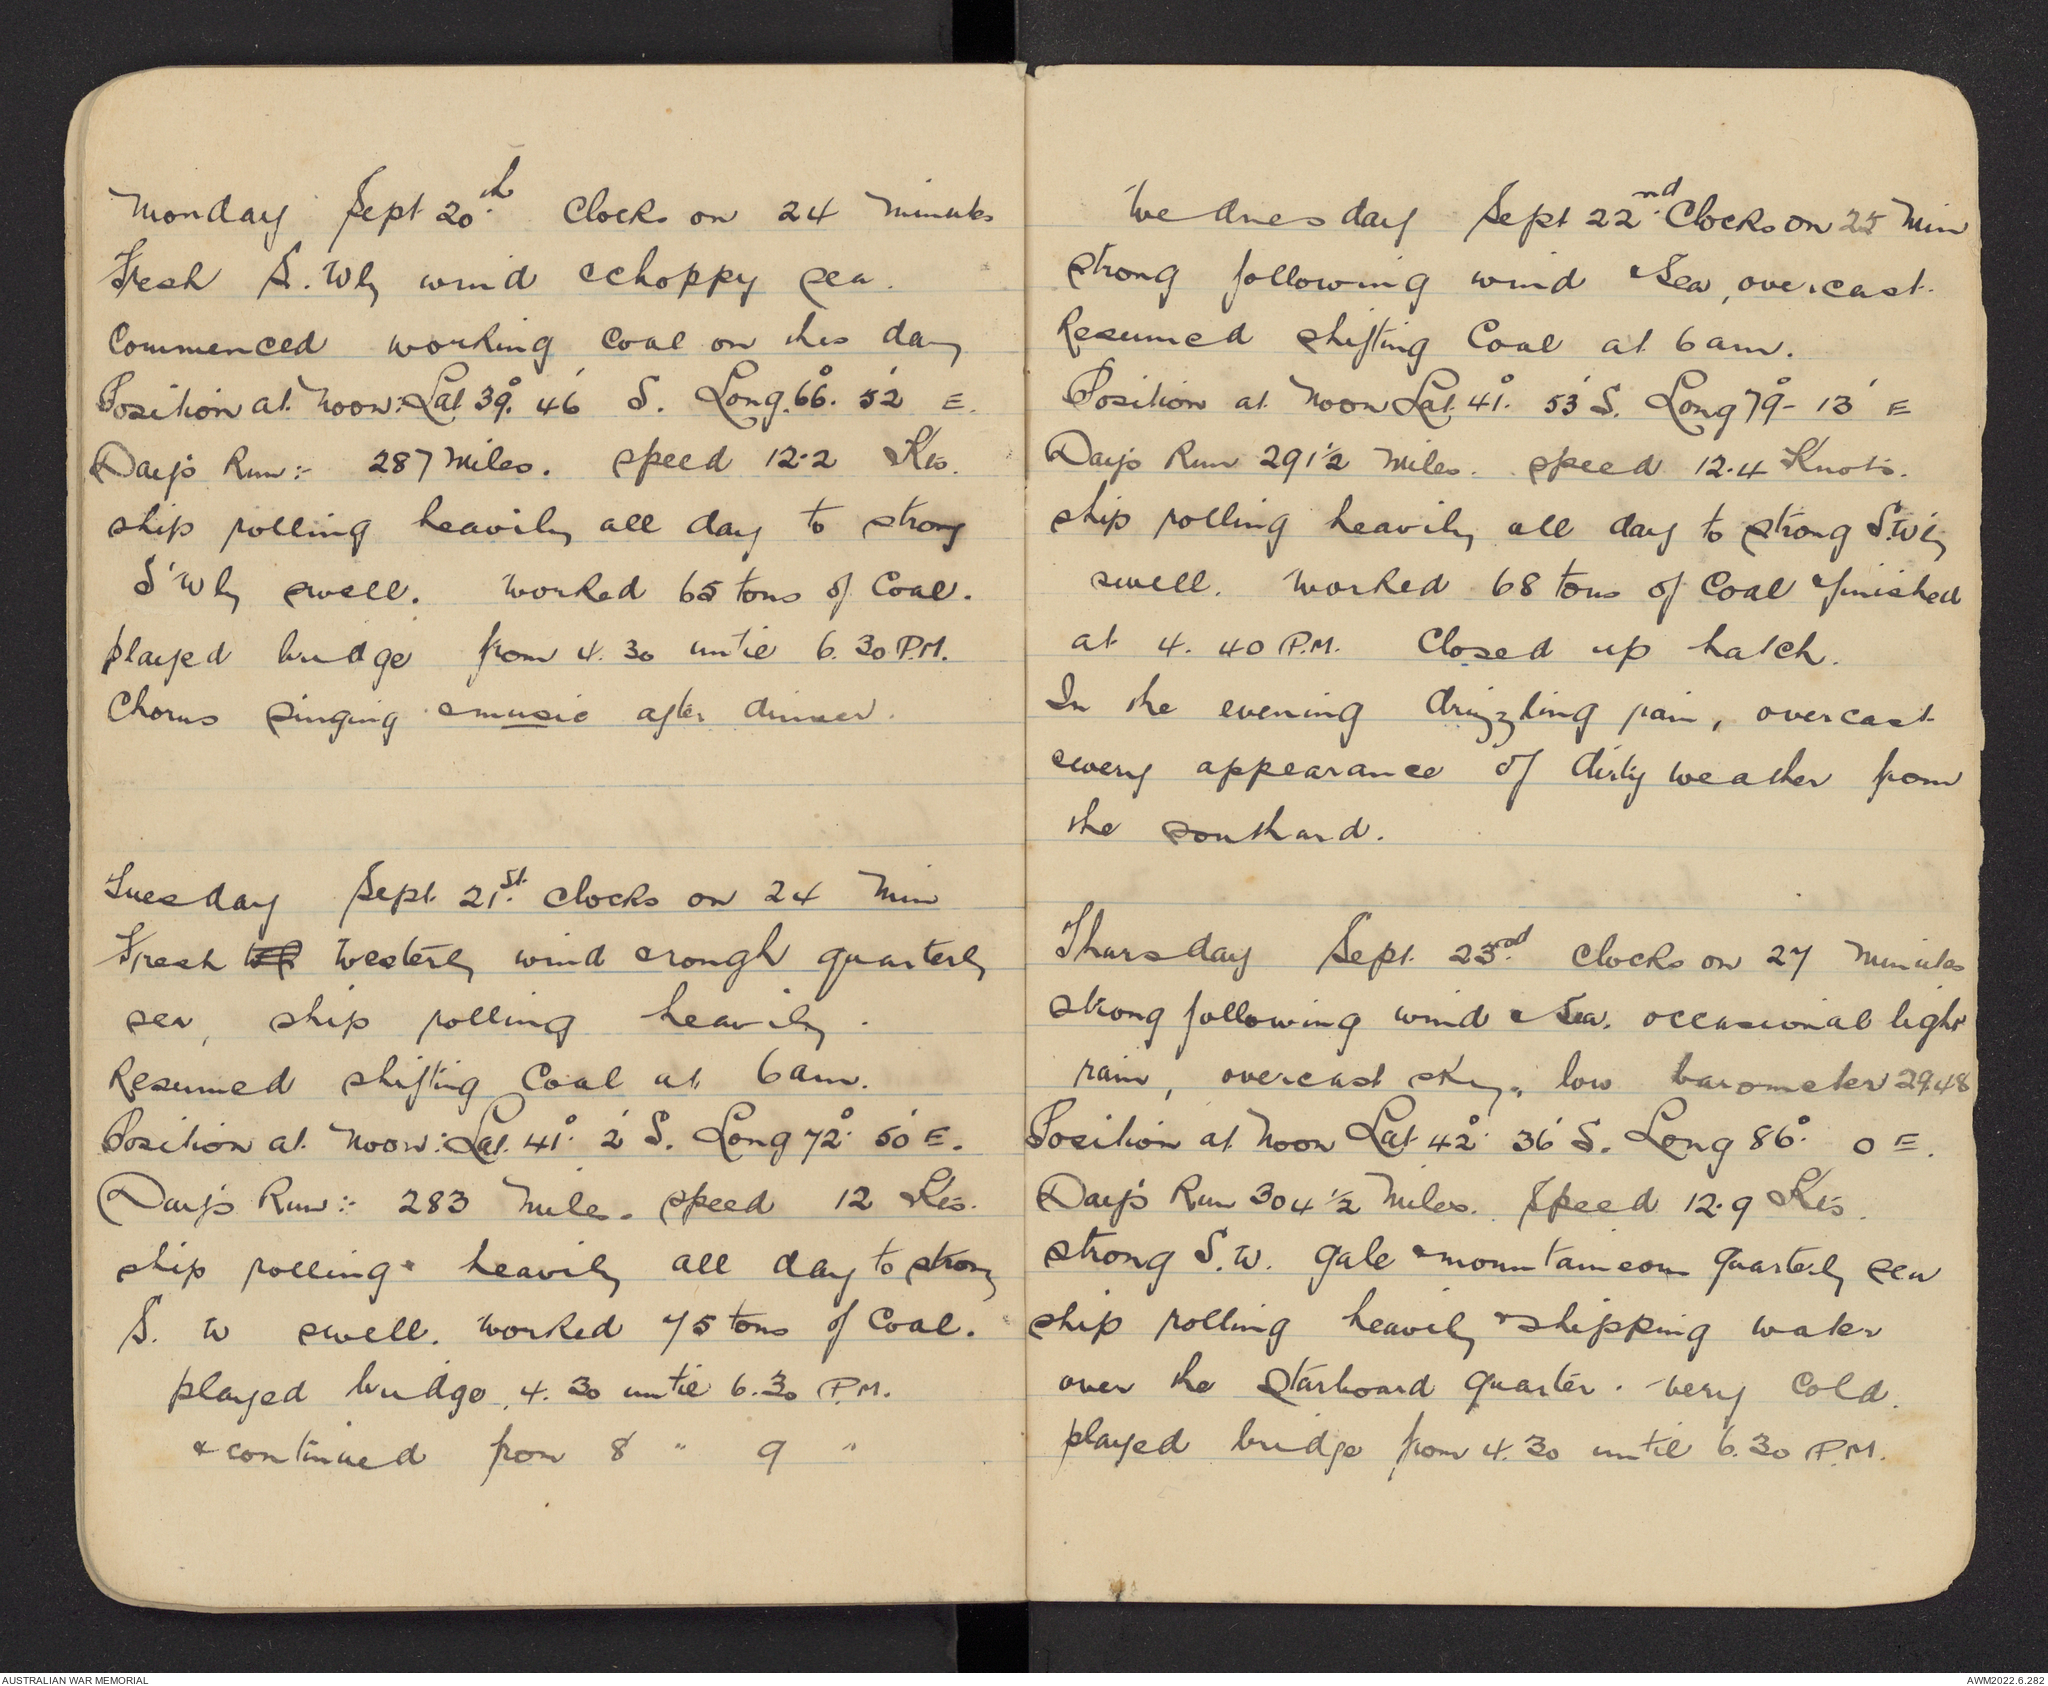 Monday Sept 20th. Clocks on 24 Minutes
Fresh S.Wly wind & choppy sea.
Commenced working coal on this day
Position at Noon: Lat 39°. 46' S. Long. 66°. 52' E.
Day's Run:- 287 Miles. speed 12.2 Kts.
ship rolling heavily all day to strong
S'Wly swell. Worked 65 tons of Coal.
played bridge from 4.30 until 6.30 P.M.
Chorus singing & music after dinner.
Tuesday Sept. 21st. Clocks on 24 Min
Fresh Westerly wind & rough quarterly
sea, ship rolling heavily.
Resumed shifting Coal at 6 am.
Position at Noon: Lat. 41°. 2' S. Long 72°. 50' E.
Day's Run:- 283 Miles. speed 12 Kts.
ship rolling heavily all day to strong
S. W swell. Worked 75 tons of Coal.
played bridge 4.30 until 6.30 P.M.
& continued from 8 " 9 "
Wednesday Sept 22nd. Clocks on 25 Min
strong following wind & Sea, overcast.
Resumed shifting Coal at 6 am.
Position at Noon Lat. 41°. 53' S. Long 79°- 13' E
Day's Run 291 1/2 Miles. speed 12.4 Knots.
ship rolling heavily all day to strong S.W'ly
swell. Worked 68 tons of Coal & finished
at 4.40 P.M. Closed up hatch.
In the evening drizzling rain, overcast
& every appearance of dirty weather from
the southard.
Thursday Sept. 23rd. Clocks on 27 Minutes
strong following wind & Sea. occasional light
rain, overcast sky, low barometer 29.48
Position at Noon Lat 42°. 36' S. Long 86°. 0 E.
Day's Run 304 1/2 Miles. Speed 12.9 Kts.
strong S.W. gale & mountaineous quarterly sea
ship rolling heavily & shipping water
over the starboard quarter. Very Cold.
played bridge from 4.30 until 6.30 P.M.
AUSTRALIAN WAR MEMORIAL
AWM2022.6.282